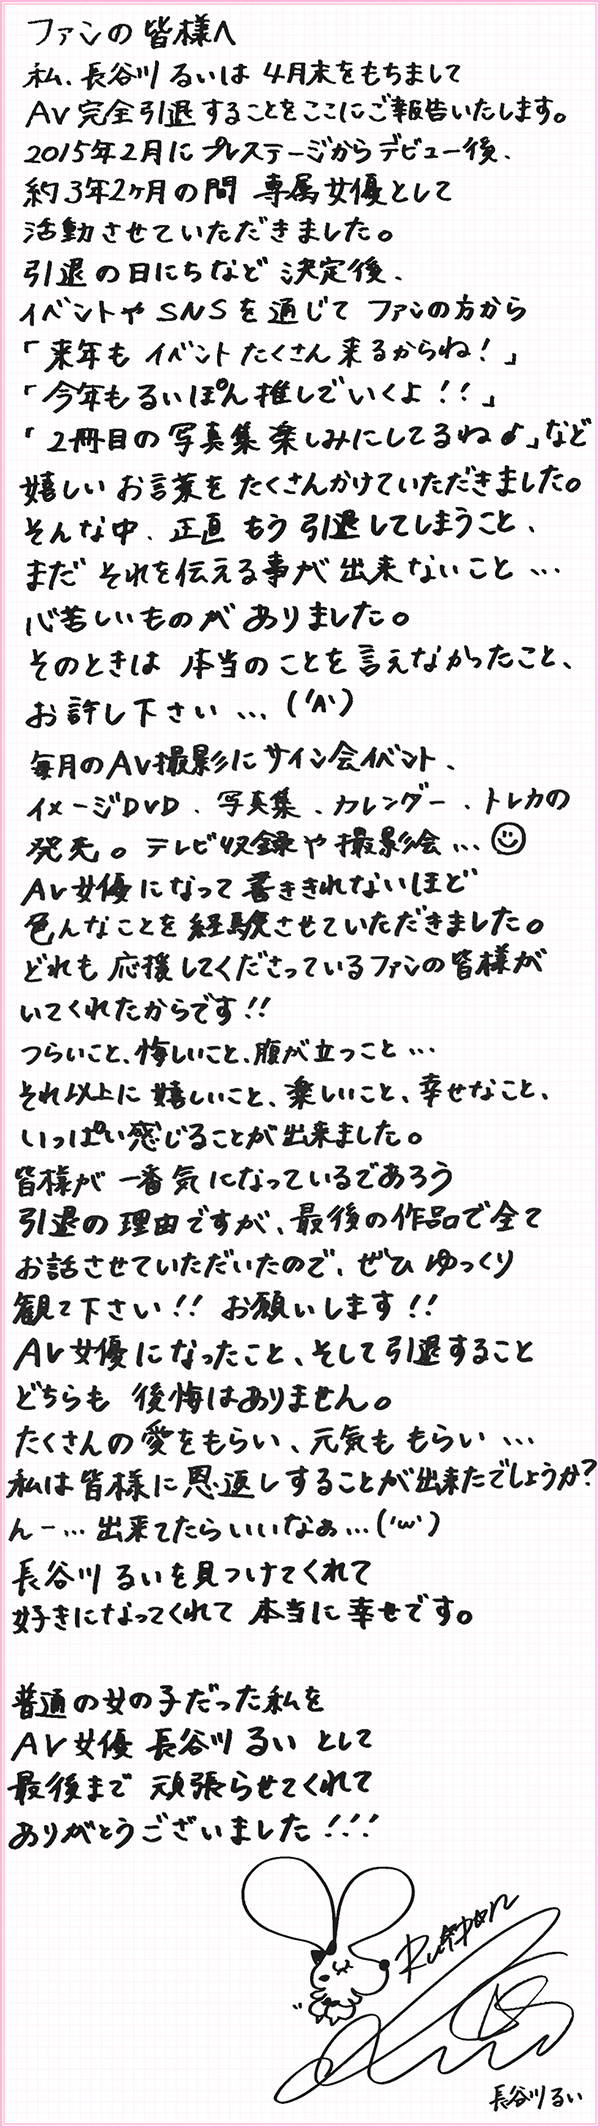 ファンの皆様へ
私、長谷川るいは 4月末をもちまして
AV完全引退することをここにご報告いたします。
2015年2月に プレステージからデビュー後、
約3年2ヶ月の間 専属女優として
活動させていただきました。
引退の日にちなど 決定後、
イベントやSNSを通じて ファンの方から
「来年も イベントたくさん来るからね!」
「今年もるいぽん推していくよ!!」
「2冊目の写真集楽しみにしてるね♪」など
嬉しいお言葉をたくさんかけていただきました。
そんな中、正直 もう引退してしまうこと、
まだ それを伝える事が出来ないこと…
心苦しいものがありました。
そのときは 本当のことを言えなかったこと、
お許し下さい…('∧')
毎月のAV撮影にサイン会イベント、
イメージDVD、写真集、カレンダー、トレカの
発売。テレビ収録や撮影会…☺
AV女優になって 書ききれないほど
色んなことを経験させていただきました。
どれも 応援してくださっているファンの皆様が
いてくれたからです!!
つらいこと、悔しいこと、腹が立つこと…
それ以上に 嬉しいこと、楽しいこと、幸せなこと、
いっぱい感じることが出来ました。
皆様が 一番気になっているであろう
引退の理由ですが、最後の作品で全て
お話させていただいたので、ぜひゆっくり
観て下さい!! お願いします!!
AV女優になったこと、そして引退すること
どちらも 後悔はありません。
たくさんの愛をもらい、元気ももらい…
私は皆様に恩返しすることが出来たでしょうか?
んー…出来てたらいいなぁ…('ω')
長谷川るいを見つけてくれて
好きになってくれて 本当に幸せです。
普通の女の子だった私を
AV女優 長谷川るい として
最後まで 頑張らせてくれて
ありがとうございました!!!
Ruipon
長谷川るい